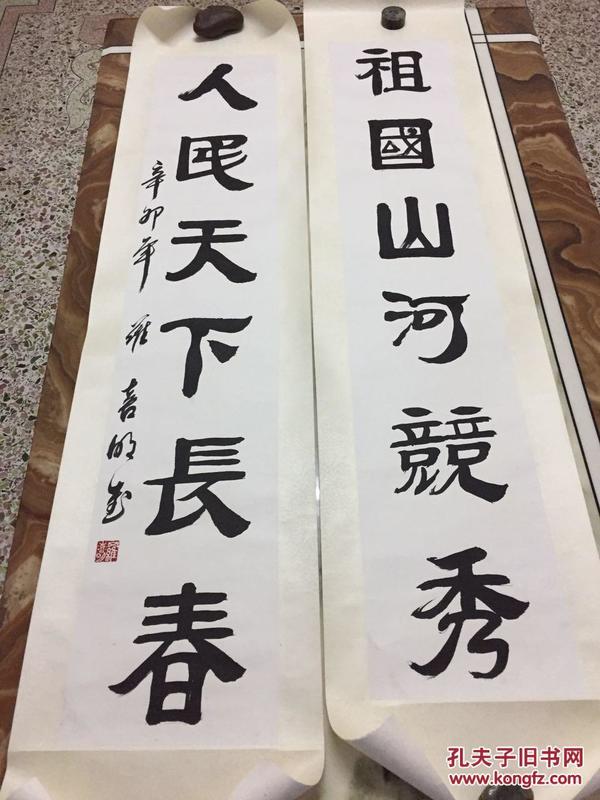 祖國山河競秀
人民天下長春
辛卯年 羅喜明書
孔夫子旧书网
www.kongfz.com